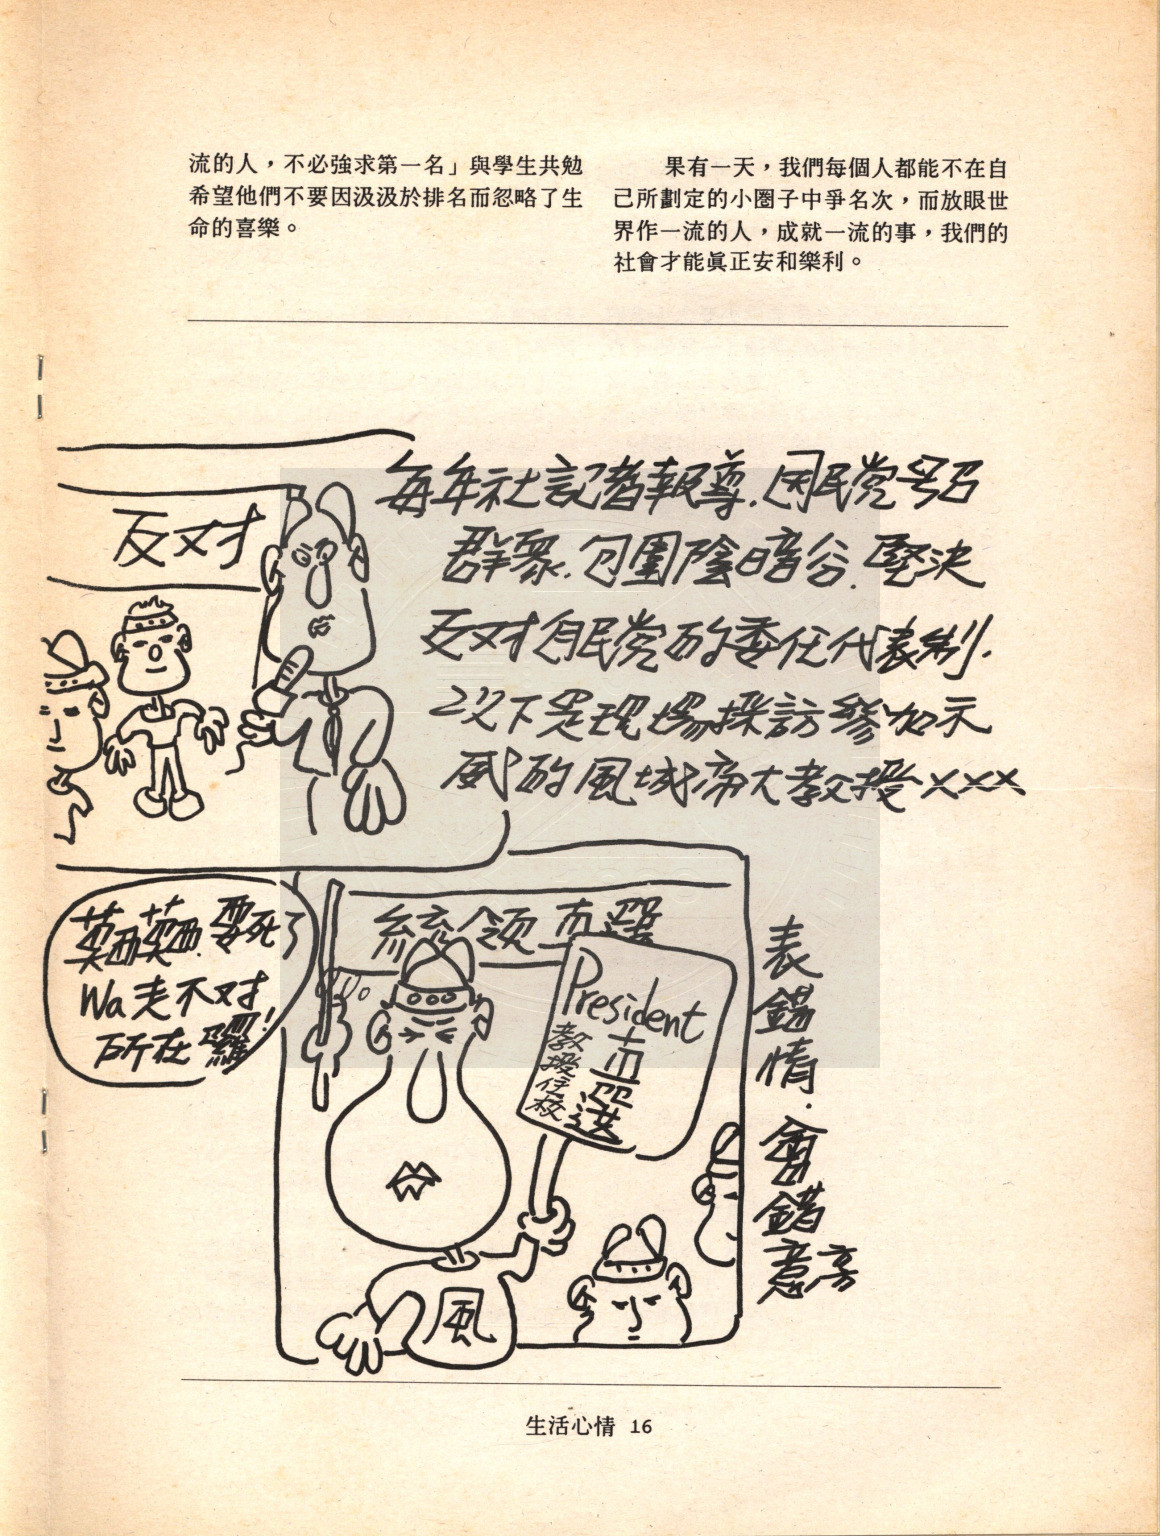 流的人，不必強求第一名」與學生共勉
希望他們不要因汲汲於排名而忽略了生
命的喜樂。
果有一天，我們每個人都能不在自
己所劃定的小圈子中爭名次，而放眼世
界作一流的人，成就一流的事，我們的
社會才能眞正安和樂利。
每年社記者報導.困民党号召
群衆.包圍陰暗谷.堅決
反对自民党的委任代表制.
以下是現場採訪參加示
威的風城帝大教授×××
反对
要死了
Wa走不对
所在囉!
統領直選
President
直選
教授任校
風
表錯情.會錯意
生活心情 16